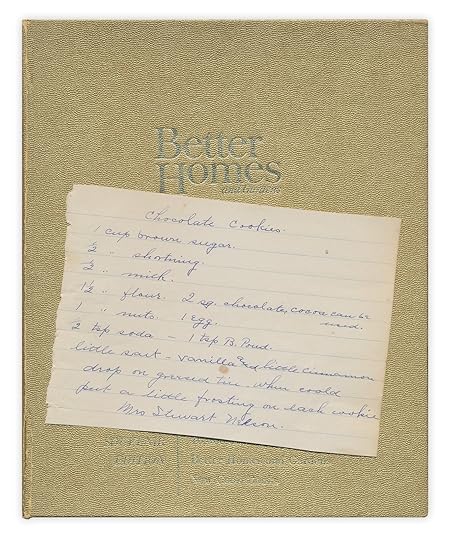 Better
Homes
and Gardens
Chocolate Cookies.
1 cup brown sugar.
½ " shortning.
½ " milk.
1½ " flour. 2 sq. chocolate, cocoa can be
used.
1 " nuts. 1 egg.
2 tsp soda - 1 tsp B. Powd.
little salt - vanilla and little cinnamon
drop on greased tin. when cold
put a little frosting on each cookie
Mrs Stewart Nelson.
SOUVENIR
EDITION
Better Homes and Gardens
New Cook Book